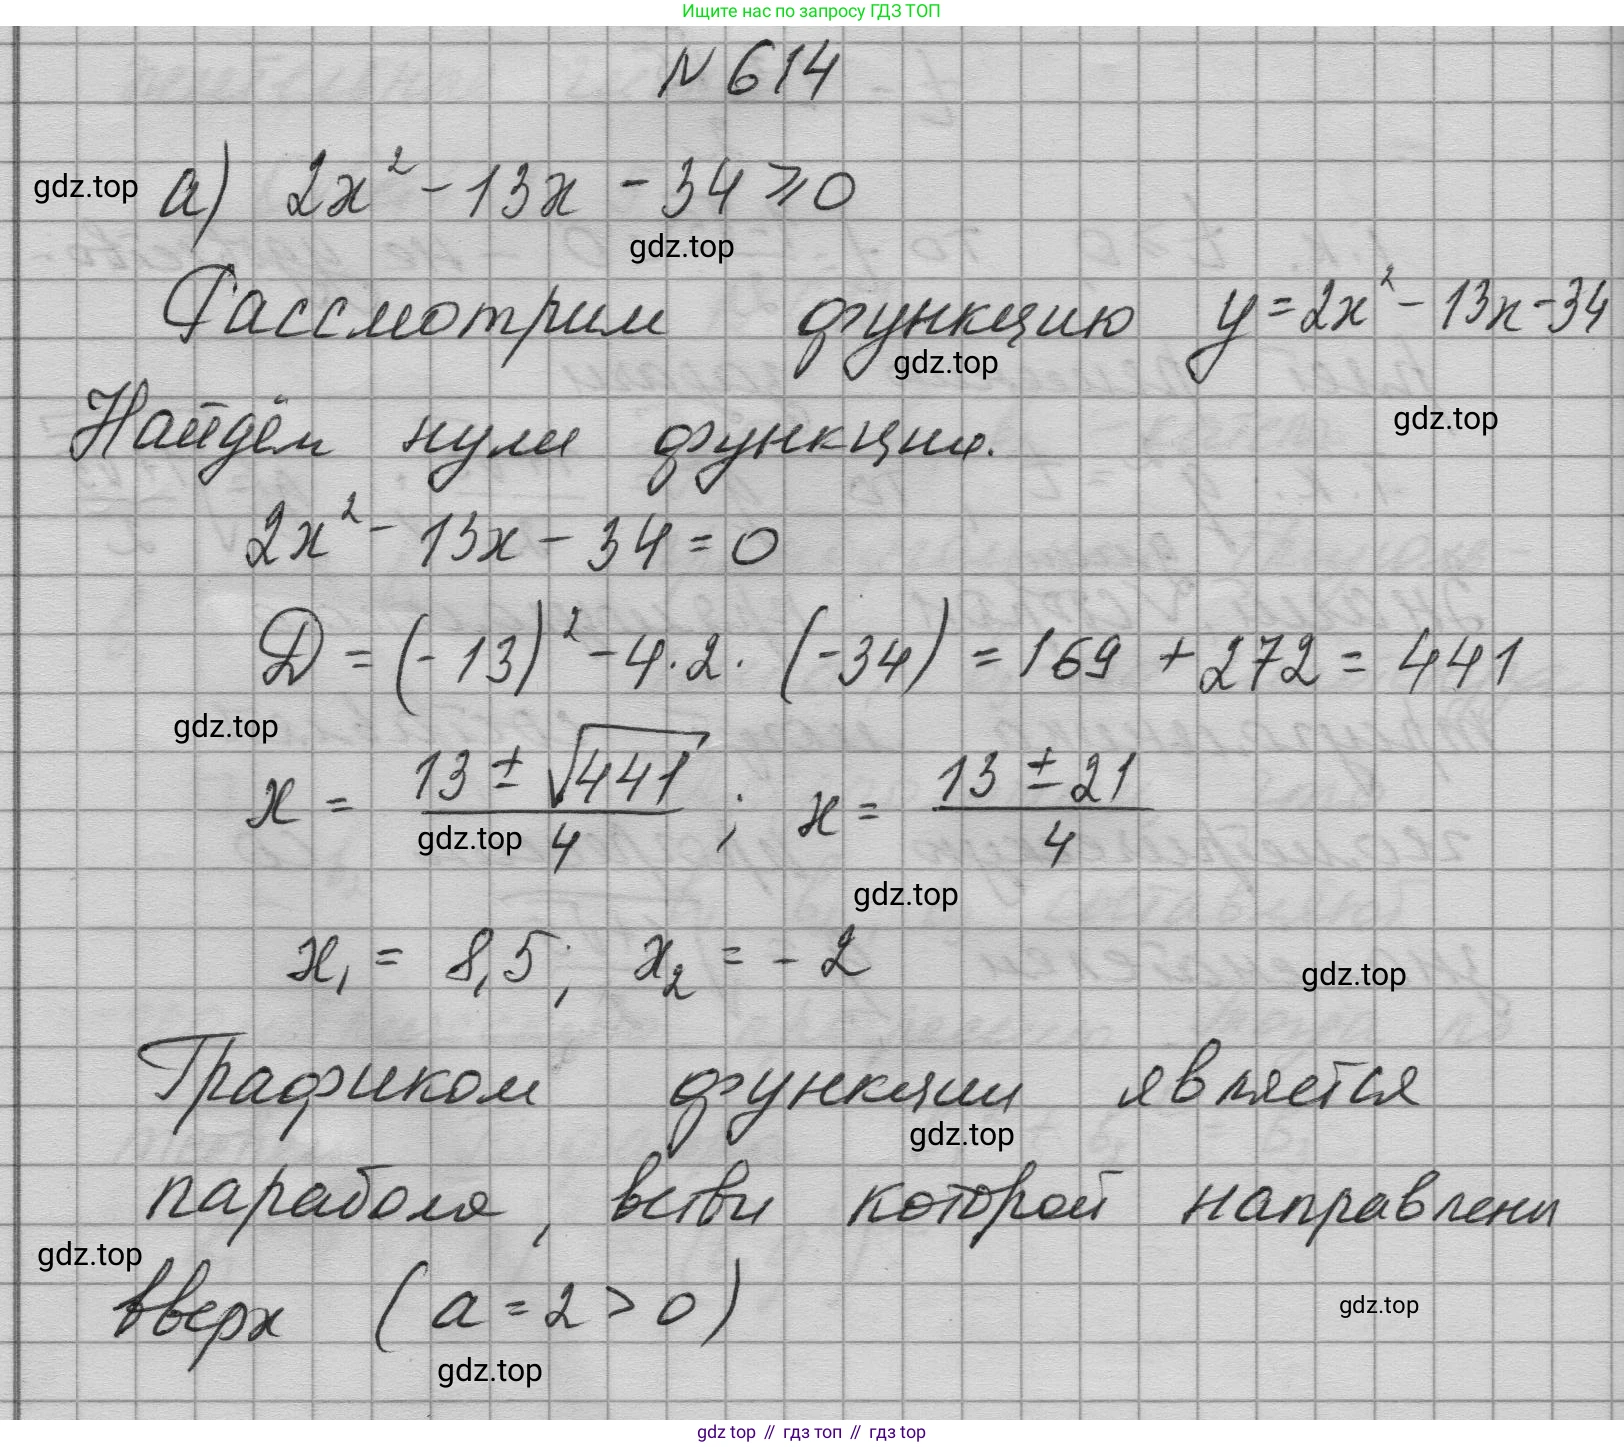 Ищите нас по запросу ГДЗ ТОП
N 614
gdz.top
а) 2x² - 13x - 34 ⩾ 0
gdz.top
Рассмотрим функцию y = 2x² - 13x - 34
gdz.top
gdz.top
Найдём нули функции.
2x² - 13x - 34 = 0
D = (-13)² - 4 · 2 · (-34) = 169 + 272 = 441
gdz.top
x = (13 ± √441)/4 ; x = (13 ± 21)/4
gdz.top
gdz.top
x₁ = 8,5; x₂ = - 2
gdz.top
Графиком функции является
gdz.top
парабола, ветви которой направлены
gdz.top
вверх (a = 2 > 0)
gdz.top
gdz.top
gdz top // гдз топ // гдз top